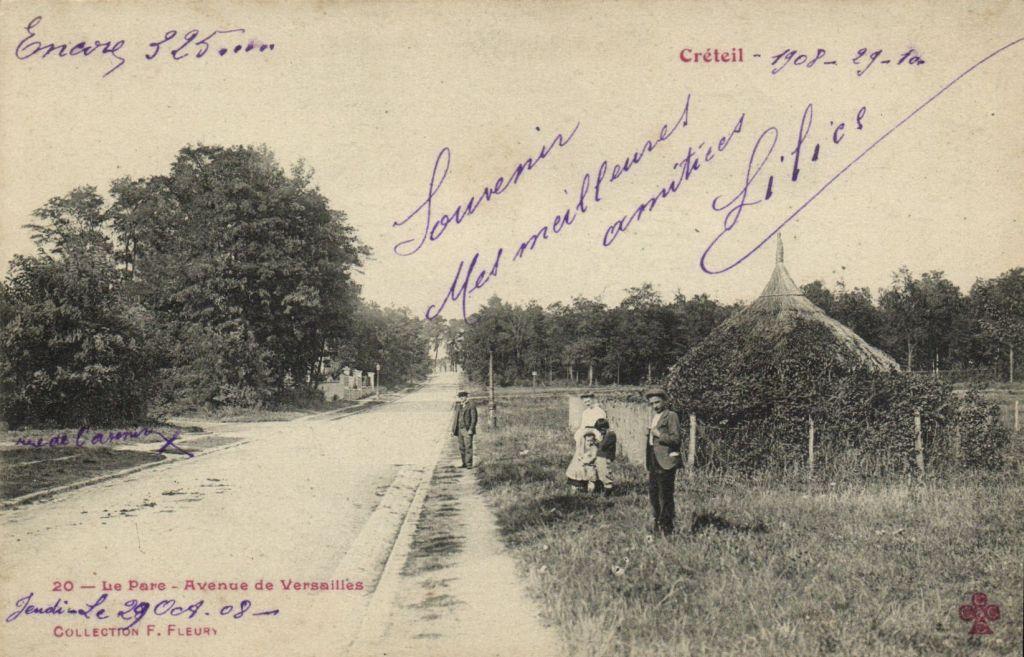 Encore 325.....
Créteil - 1908 - 29 - 10
Souvenir
Mes meilleures
amitiées
rue de l'avenir X
20 — Le Parc - Avenue de Versailles
Jeudi - Le 29 Oct. 08 —
COLLECTION F. FLEURY